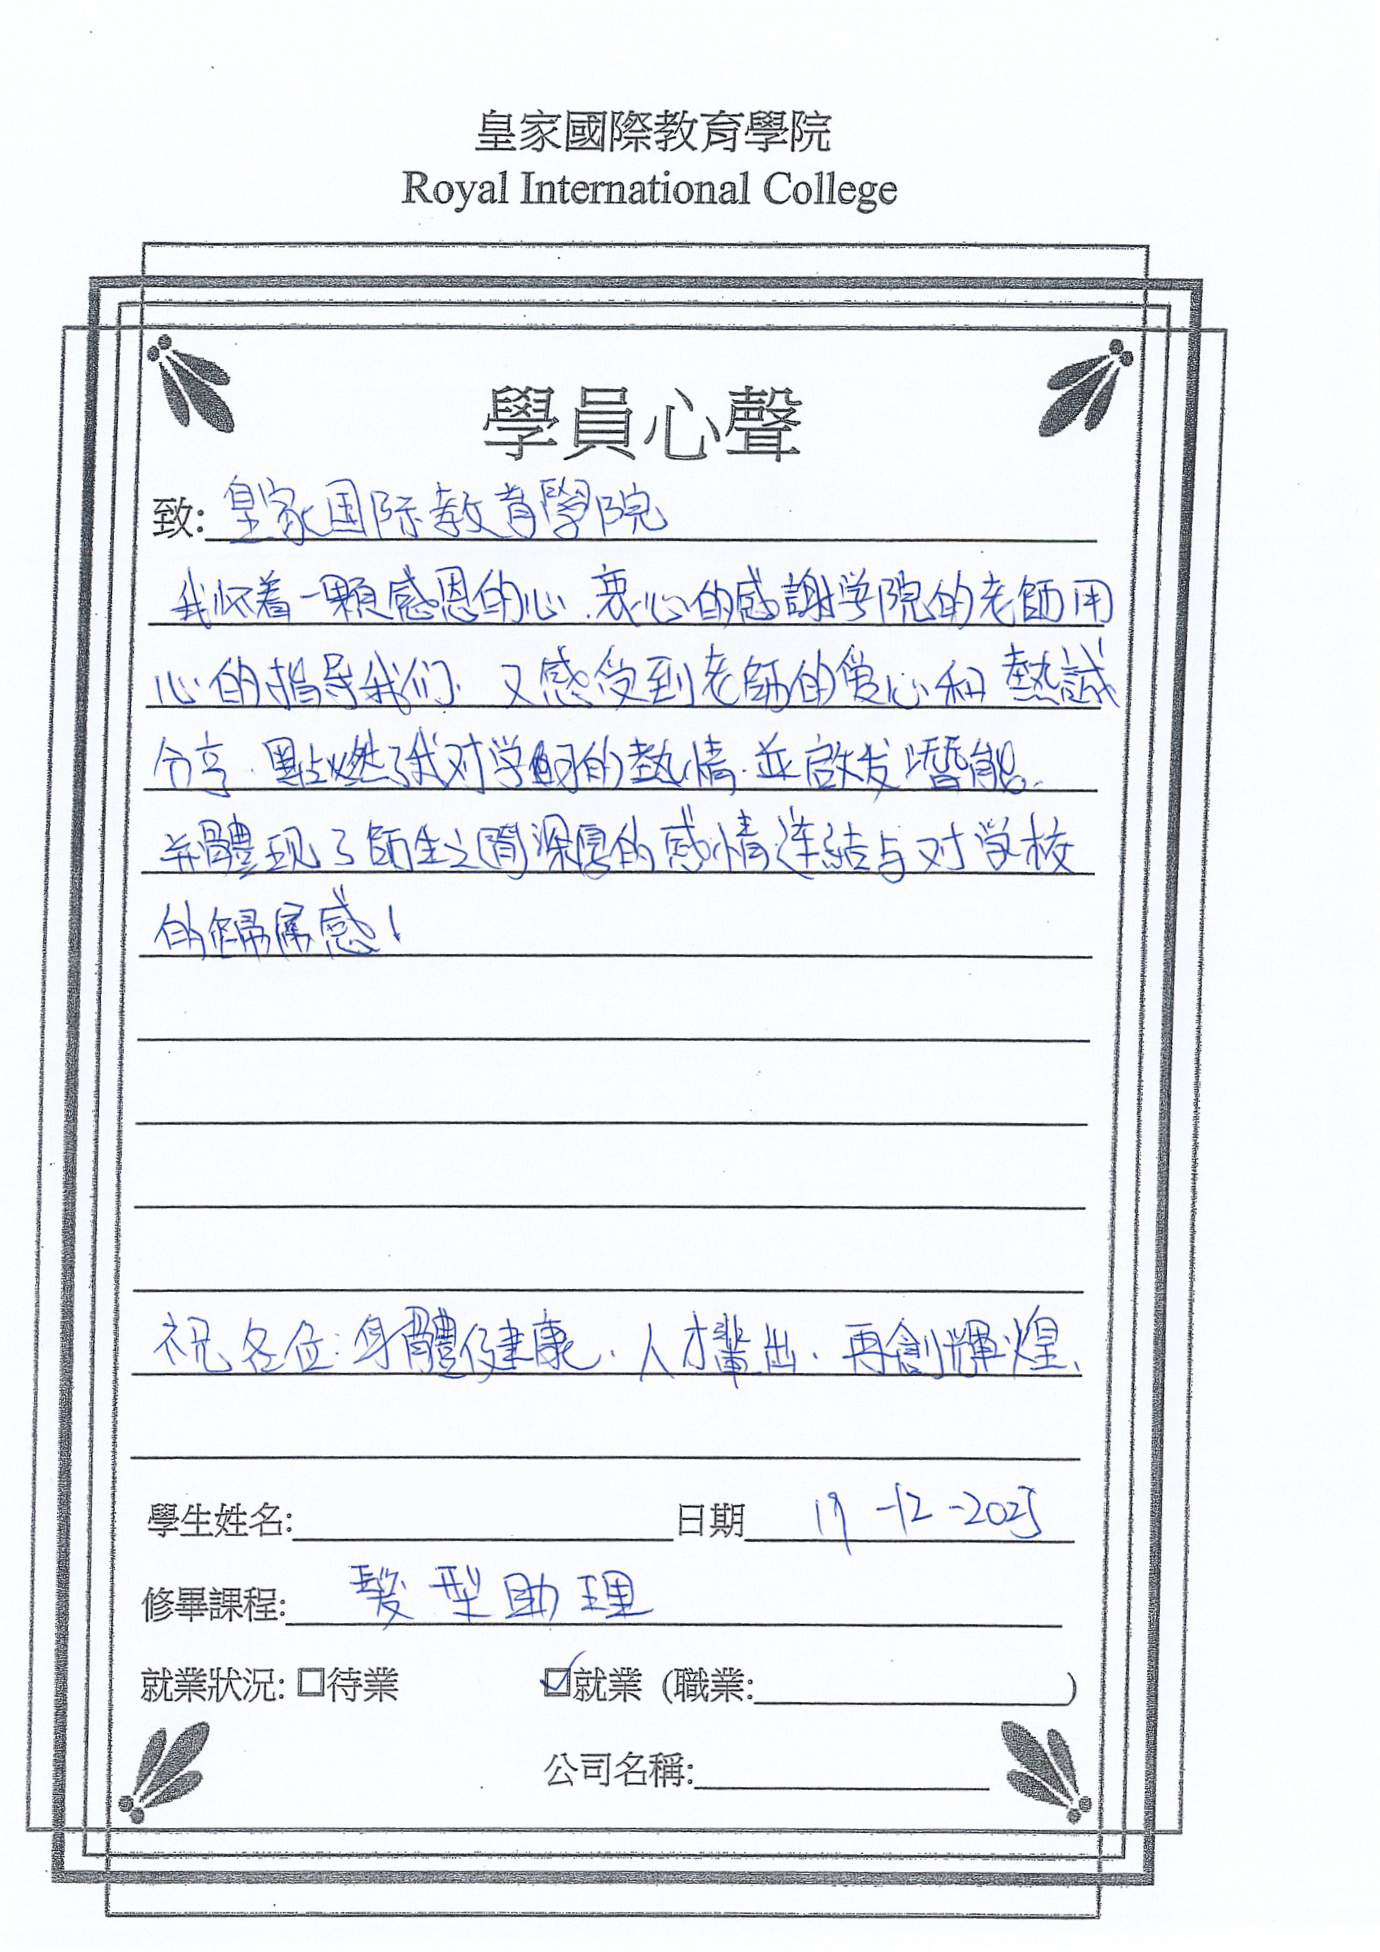 皇家國際教育學院
Royal International College
學員心聲
致: 皇家国际教育學院
我怀着一顆感恩的心.衷心的感謝学院的老師用
心的指导我们.又感受到老師的爱心和熱誠
分享.點燃了我对学習的熱情.並啟发潛能.
并體现了師生之間深厚的感情连結与对学校
的歸属感!
祝各位:身體健康.人才輩出.再創輝煌、
學生姓名: 日期 19-12-2025
修畢課程: 髮型助理
就業狀況: □待業 ☑就業 (職業: )
公司名稱: